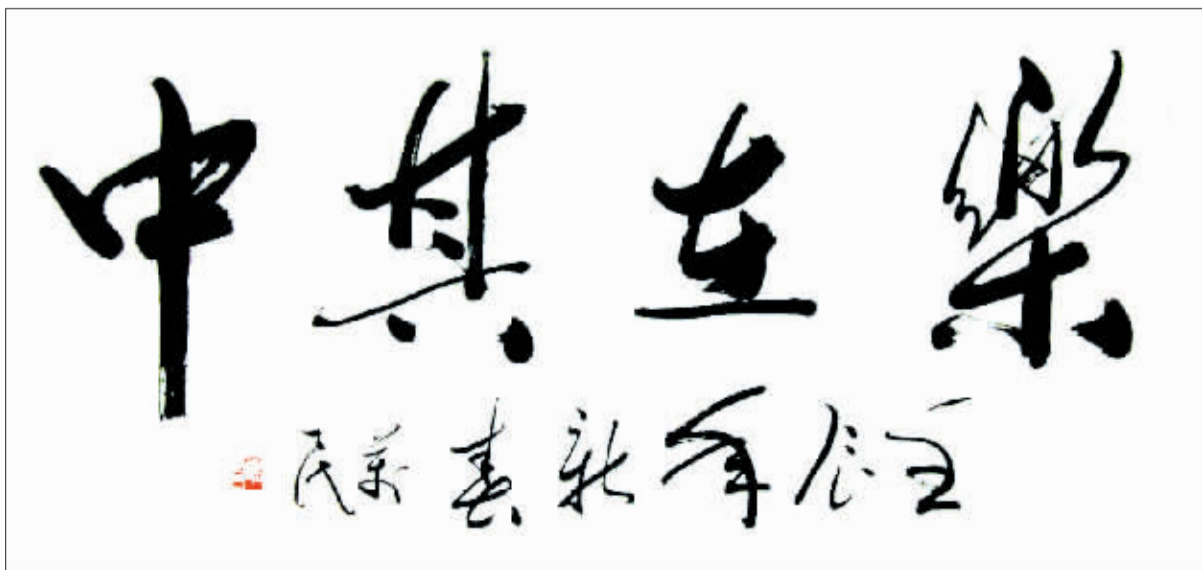 樂在其中
壬辰年新春萬民